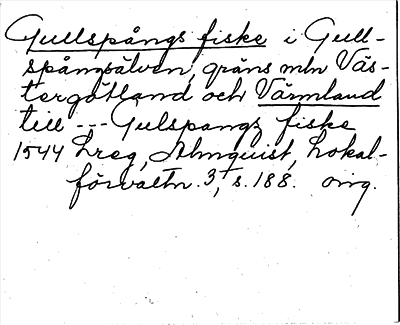 Gullspångs fiske i Gull-
spångsälven, gräns mln Väs-
tergötland och Värmland
till --- Gulspangz fiske
1544 Lreg, Almquist, Lokal-
förvaltn. 3, s. 188. orig.